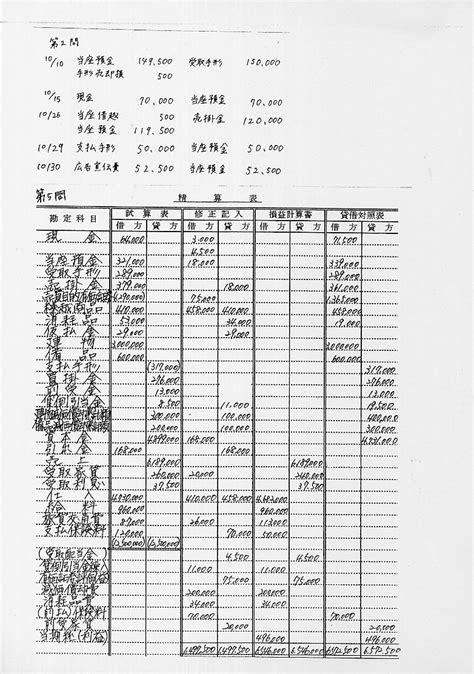 第2問
10/10 当座預金 149,500 受取手形 150,000
手形売却損 500
10/15 現金 70,000 当座預金 70,000
10/26 当座借越 500 売掛金 120,000
当座預金 119,500
10/29 支払手形 50,000 当座預金 50,000
10/30 広告宣伝費 52,500 当座預金 52,500
第5問
精算表
勘定科目 試算表 修正記入 損益計算書 貸借対照表
借方 貸方 借方 貸方 借方 貸方 借方 貸方
現金 64,000 3,000 71,500
4,500
当座預金 321,000 18,000 339,000
受取手形 289,000 289,000
売掛金 379,000 18,000 361,000
75,000 1,365,000
410,000 458,000 410,000 458,000
消耗品 53,000 34,000 19,000
仮払金 29,000 29,000
建物 2,000,000 2,000,000
備品 600,000 600,000
支払手形 (317,000) 317,000
買掛金 276,000 276,000
前受金 13,000 13,000
貸倒引当金 8,500 11,000 19,500
300,000 100,000 400,000
200,000 100,000 300,000
資本金 4,899,000 168,000 4,731,000
引出金 168,000 168,000
売上 6,189,000 6,189,000
受取家賃 260,000 20,000 240,000
受取利息 37,500 37,500
仕入 410,000 458,000
給料 960,000 960,000
旅費交通費 87,000 26,000 113,000
支払保険料 120,000 70,000 50,000
(12,500,000) (12,500,000)
(受取配当金) 4,500 4,500
貸倒引当金繰入 11,000 11,000
75,000 75,000
減価償却費 200,000 200,000
消耗品費 34,000 34,000
(前払)保険料 70,000 70,000
前受家賃 20,000 20,000
当期純(利益) 496,000 496,000
1,497,500 1,497,500 6,546,000 6,546,000 6,572,500 6,572,500